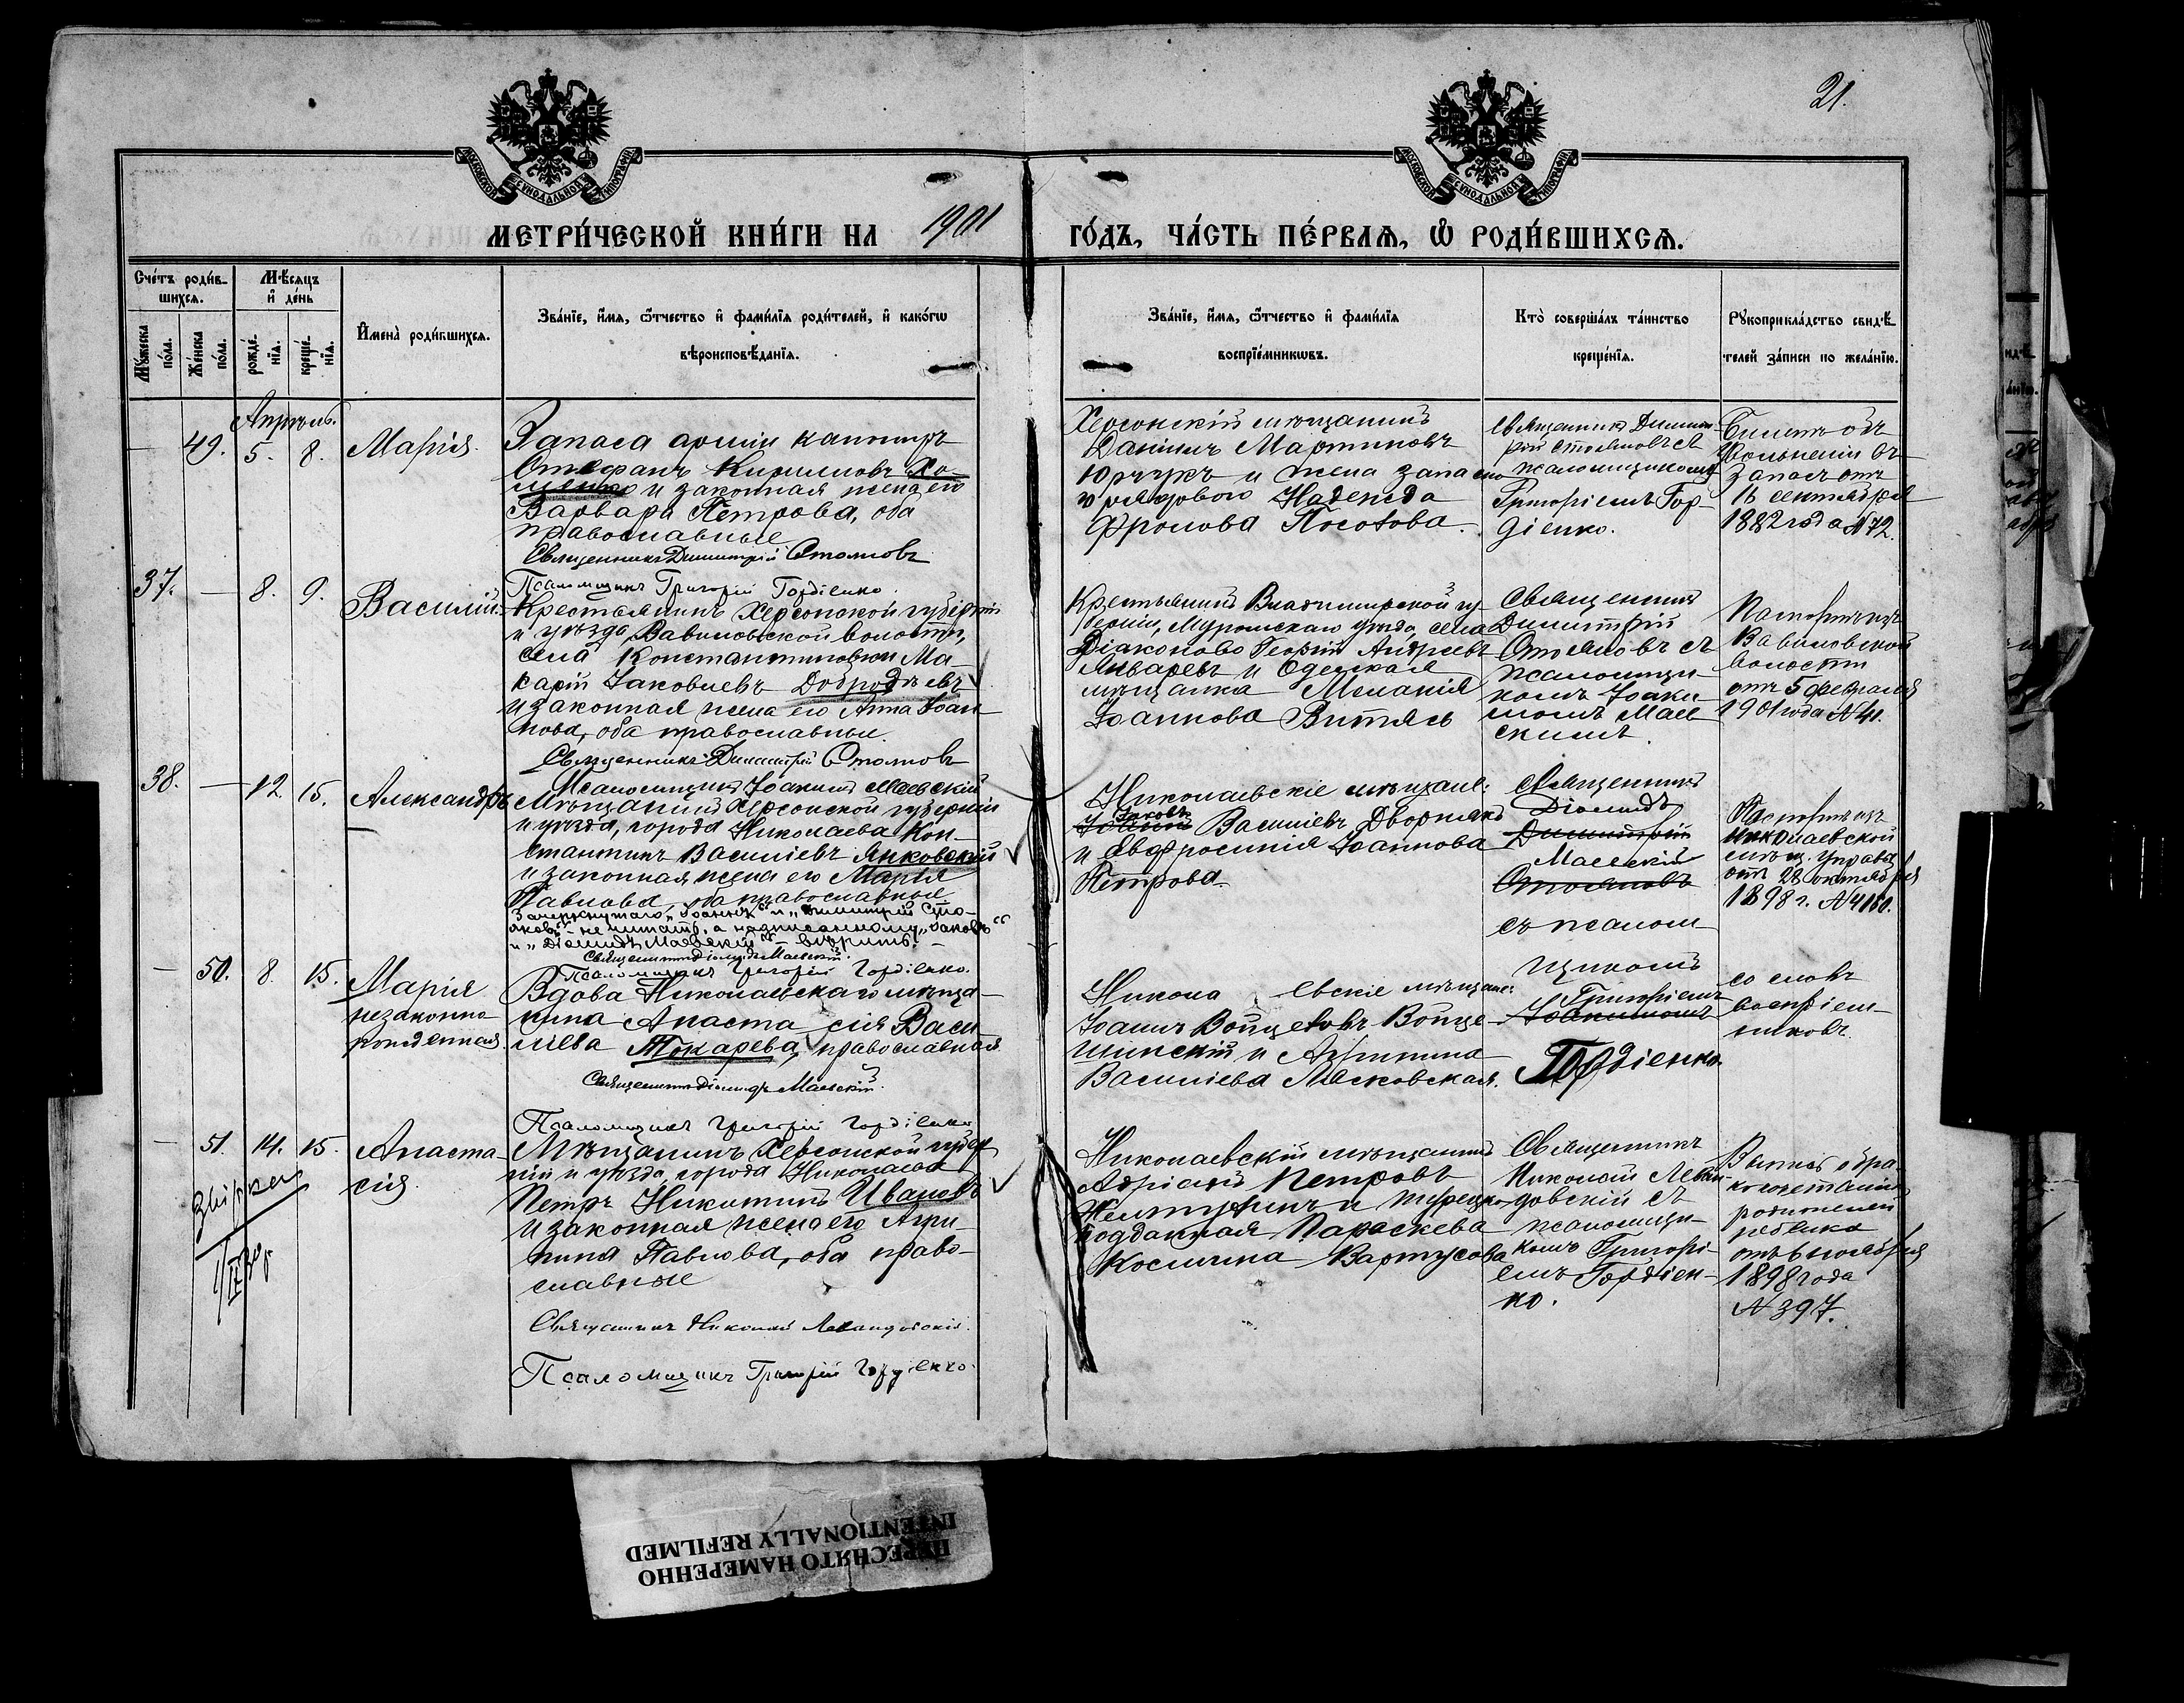 21.
МОСКОВСКОЙ СѴНОДАЛЬНОЙ ТИПОГРАФІИ
МОСКОВСКОЙ СѴНОДАЛЬНОЙ ТИПОГРАФІИ
МЕТРИ́ЧЕСКОЙ КНИ́ГИ НА 1901 ГО́ДЪ, ЧА́СТЬ ПЕ́РВАѦ, Ѽ РОДИ́ВШИХСѦ.
Сче́тъ роди́в-
шихсѧ.
Мꙋ́жеска по́ла.
Же́нска по́ла.
Мѣ́сѧцъ
и҆ де́нь
рожде́-
нїѧ.
креще́-
нїѧ.
И҆мена̀ роди́вшихсѧ.
Зва́нїе, и҆́мѧ, ѻ҆́тчество и҆ фами́лїѧ роди́телей, и҆ како́гѡ
вѣроисповѣ́данїѧ.
Зва́нїе, и҆́мѧ, ѻ҆́тчество и҆ фами́лїѧ
воспрїе́мникѡвъ.
Кто̀ соверша́лъ та́инство
креще́нїѧ.
Рꙋкоприкла́дство свидѣ́-
телей за́писи по жела́нїю.
Апрѣль.
49. 5. 8. Марія.
Запаса арміи
Стефанъ Кирилловъ Хо-
и законная жена его
Варвара Петрова, оба
православные
Священникъ Димитрій Стояновъ
Псаломщикъ Григорій Гордіенко.
Херсонскій мѣщанинъ
Даніилъ Мартиновъ
и жена запасно
рядового Надежда
Фролова
Священникъ Димит
рій Стояновъ съ
псаломщикомъ
Григоріемъ Гор-
діенко.
Билетъ объ
увольненіи въ
запасъ отъ
сентября
1882 года № 72.
37. — 8. 9. Василій.
Крестьянинъ Херсонской губерніи
и уѣзда, Вавиловской волости,
села Константиновки Ма-
карій Іаковлевъ Добродѣевъ
и законная жена его Анна Іоан-
нова, оба православные.
Священникъ Димитрій Стояновъ
Псаломщикъ Іоакимъ Маевскій
Крестьянинъ Владимірской гу-
берніи, Муромскаго уѣзда, села
Діаконово Георгій Андреевъ
Январевъ и Одесская
мѣщанка Меланія
Іоаннова Витязь
Священникъ
Димитрій
Стояновъ съ
псаломщи-
комъ Іоаки-
момъ Маев
скимъ.
Паспортъ изъ
Вавиловской
волости
отъ 5 февраля
1901 года № 41.
38. — 12. 15. Александръ
Мѣщанинъ Херсонской губерніи
и уѣзда, города Николаева Кон-
стантинъ Василіевъ Янковскій
и законная жена его Марія
Павлова, оба православные
Зачеркнутаго „Іоаннъ“ и „Димитрій Сто-
яновъ“ – не читать, а надписанному „Іаковъ“
и „Діомидъ Маевскій“ – вѣрить. –
Священникъ Діомидъ Маевскій.
Псаломщикъ Григорій Гордіенко.
Николаевскіе мѣщане:
Іаковъ
Іоаннъ Василіевъ Дворнякъ
и Евфросинія Іоаннова
Петрова.
Священникъ
Діомидъ
Димитрій
Маевскій
Стояновъ
съ псалом-
щикомъ
Григоріемъ
Іоакимомъ
Гордіенко.
Паспортъ изъ
Николаевской
мѣщ. Управы
отъ 22 октября
1898 г. № 4180.
— 50. 8. 15. Марія
незаконно
рожденная.
Вдова Николаевскаго мѣща-
нина Анастасія Васи
ліева Токарева, православная
Священникъ Діомидъ Маевскій.
Псаломщикъ Григорій Гордіенко
Николаевскіе мѣщане:
Іоаннъ Войцеховъ Войце-
шинскій и Агрипина
Василіева Лясковская.
со словъ
воспріем-
никовъ.
— 51. 14. 15. Анаста-
сія.
Мѣщанинъ Херсонской губер
ніи и уѣзда, города Николаева
Петръ Никитинъ Ивановъ
и законная жена его Агри-
пина Павлова, оба право-
славные
Священникъ Николай Левандовскій.
Псаломщикъ Григорій Гордіенко.
Николаевскій мѣщанинъ
Адріанъ Петровъ
и турецко
подданная Параскева
Космина Вартусова
Священникъ
Николай Леван-
довскій съ
псаломщи-
комъ Григорі-
емъ Гордіен-
ко.
Выпись о бра-
косочетаніи
родителей
ребенка
отъ 6 ноября
1898 года
№ 397.
ПЕРЕСНЯТО НАМЕРЕННО
INTENTIONALLY REFILMED